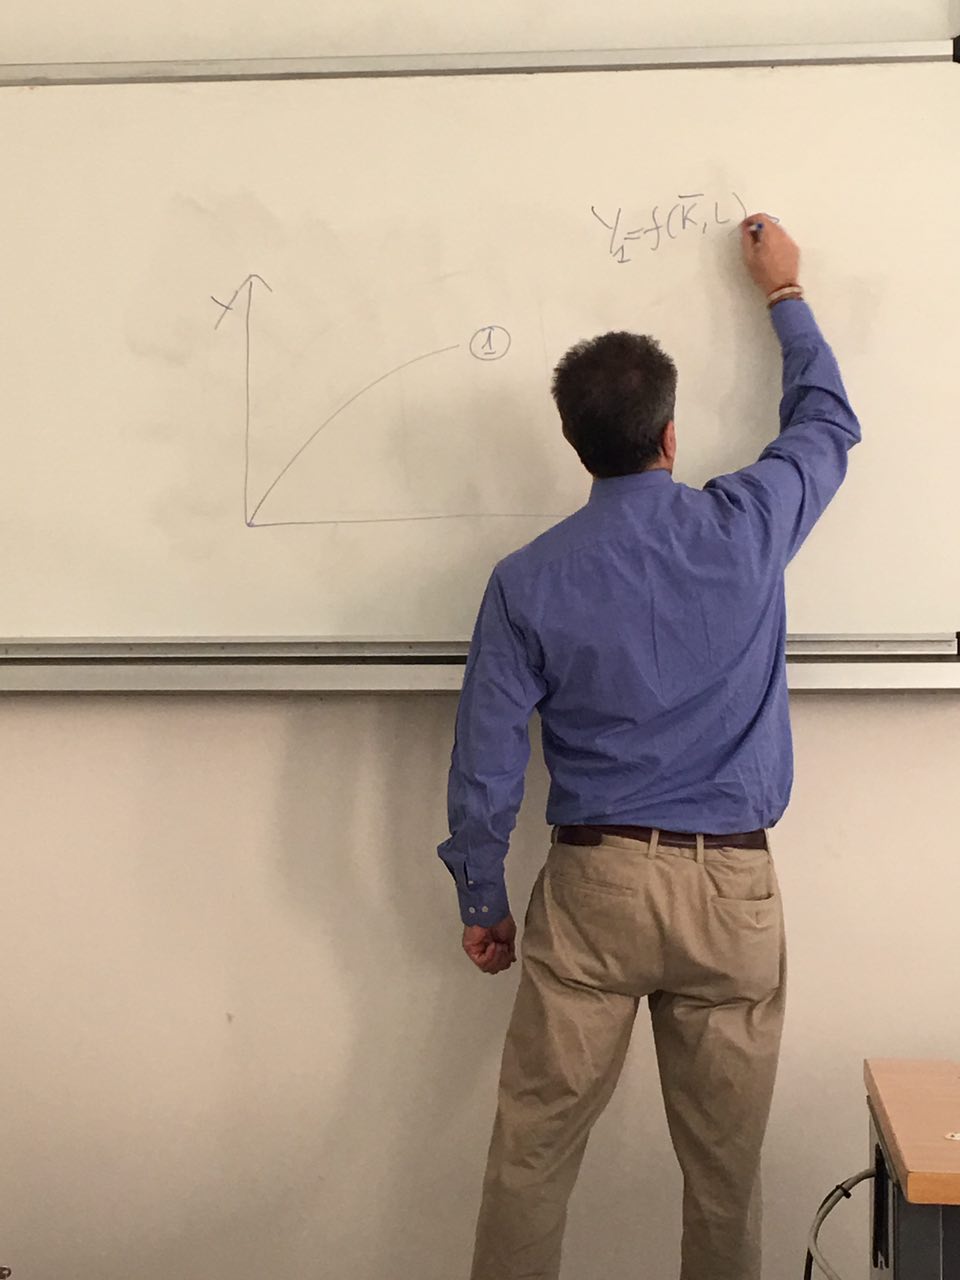 Y₁=f(K̅,L)
Y
①